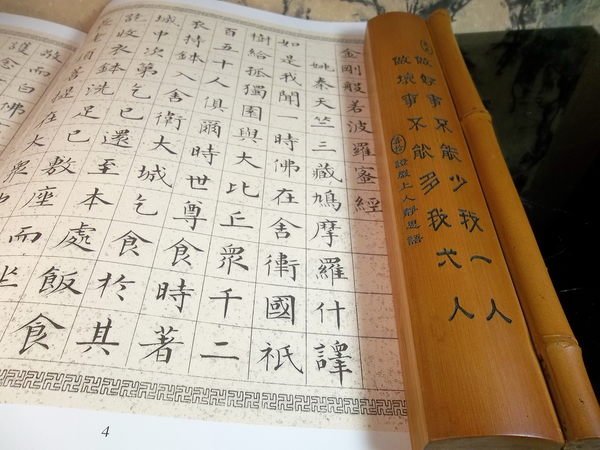 做好事不能少我一人
做壞事不能多我一人
證嚴上人靜思語
金剛般若波羅蜜經
姚秦天竺三藏鳩摩羅什譯
如是我聞一時佛在舍衛國祇
樹給孤獨園與大比丘眾千二
百五十人俱爾時世尊食時著
衣持鉢入舍衛大城乞食於其
城中次第乞已還至本處飯食
訖收衣鉢洗足已敷座而坐
老須菩提在大眾
敬而白佛
護念
4